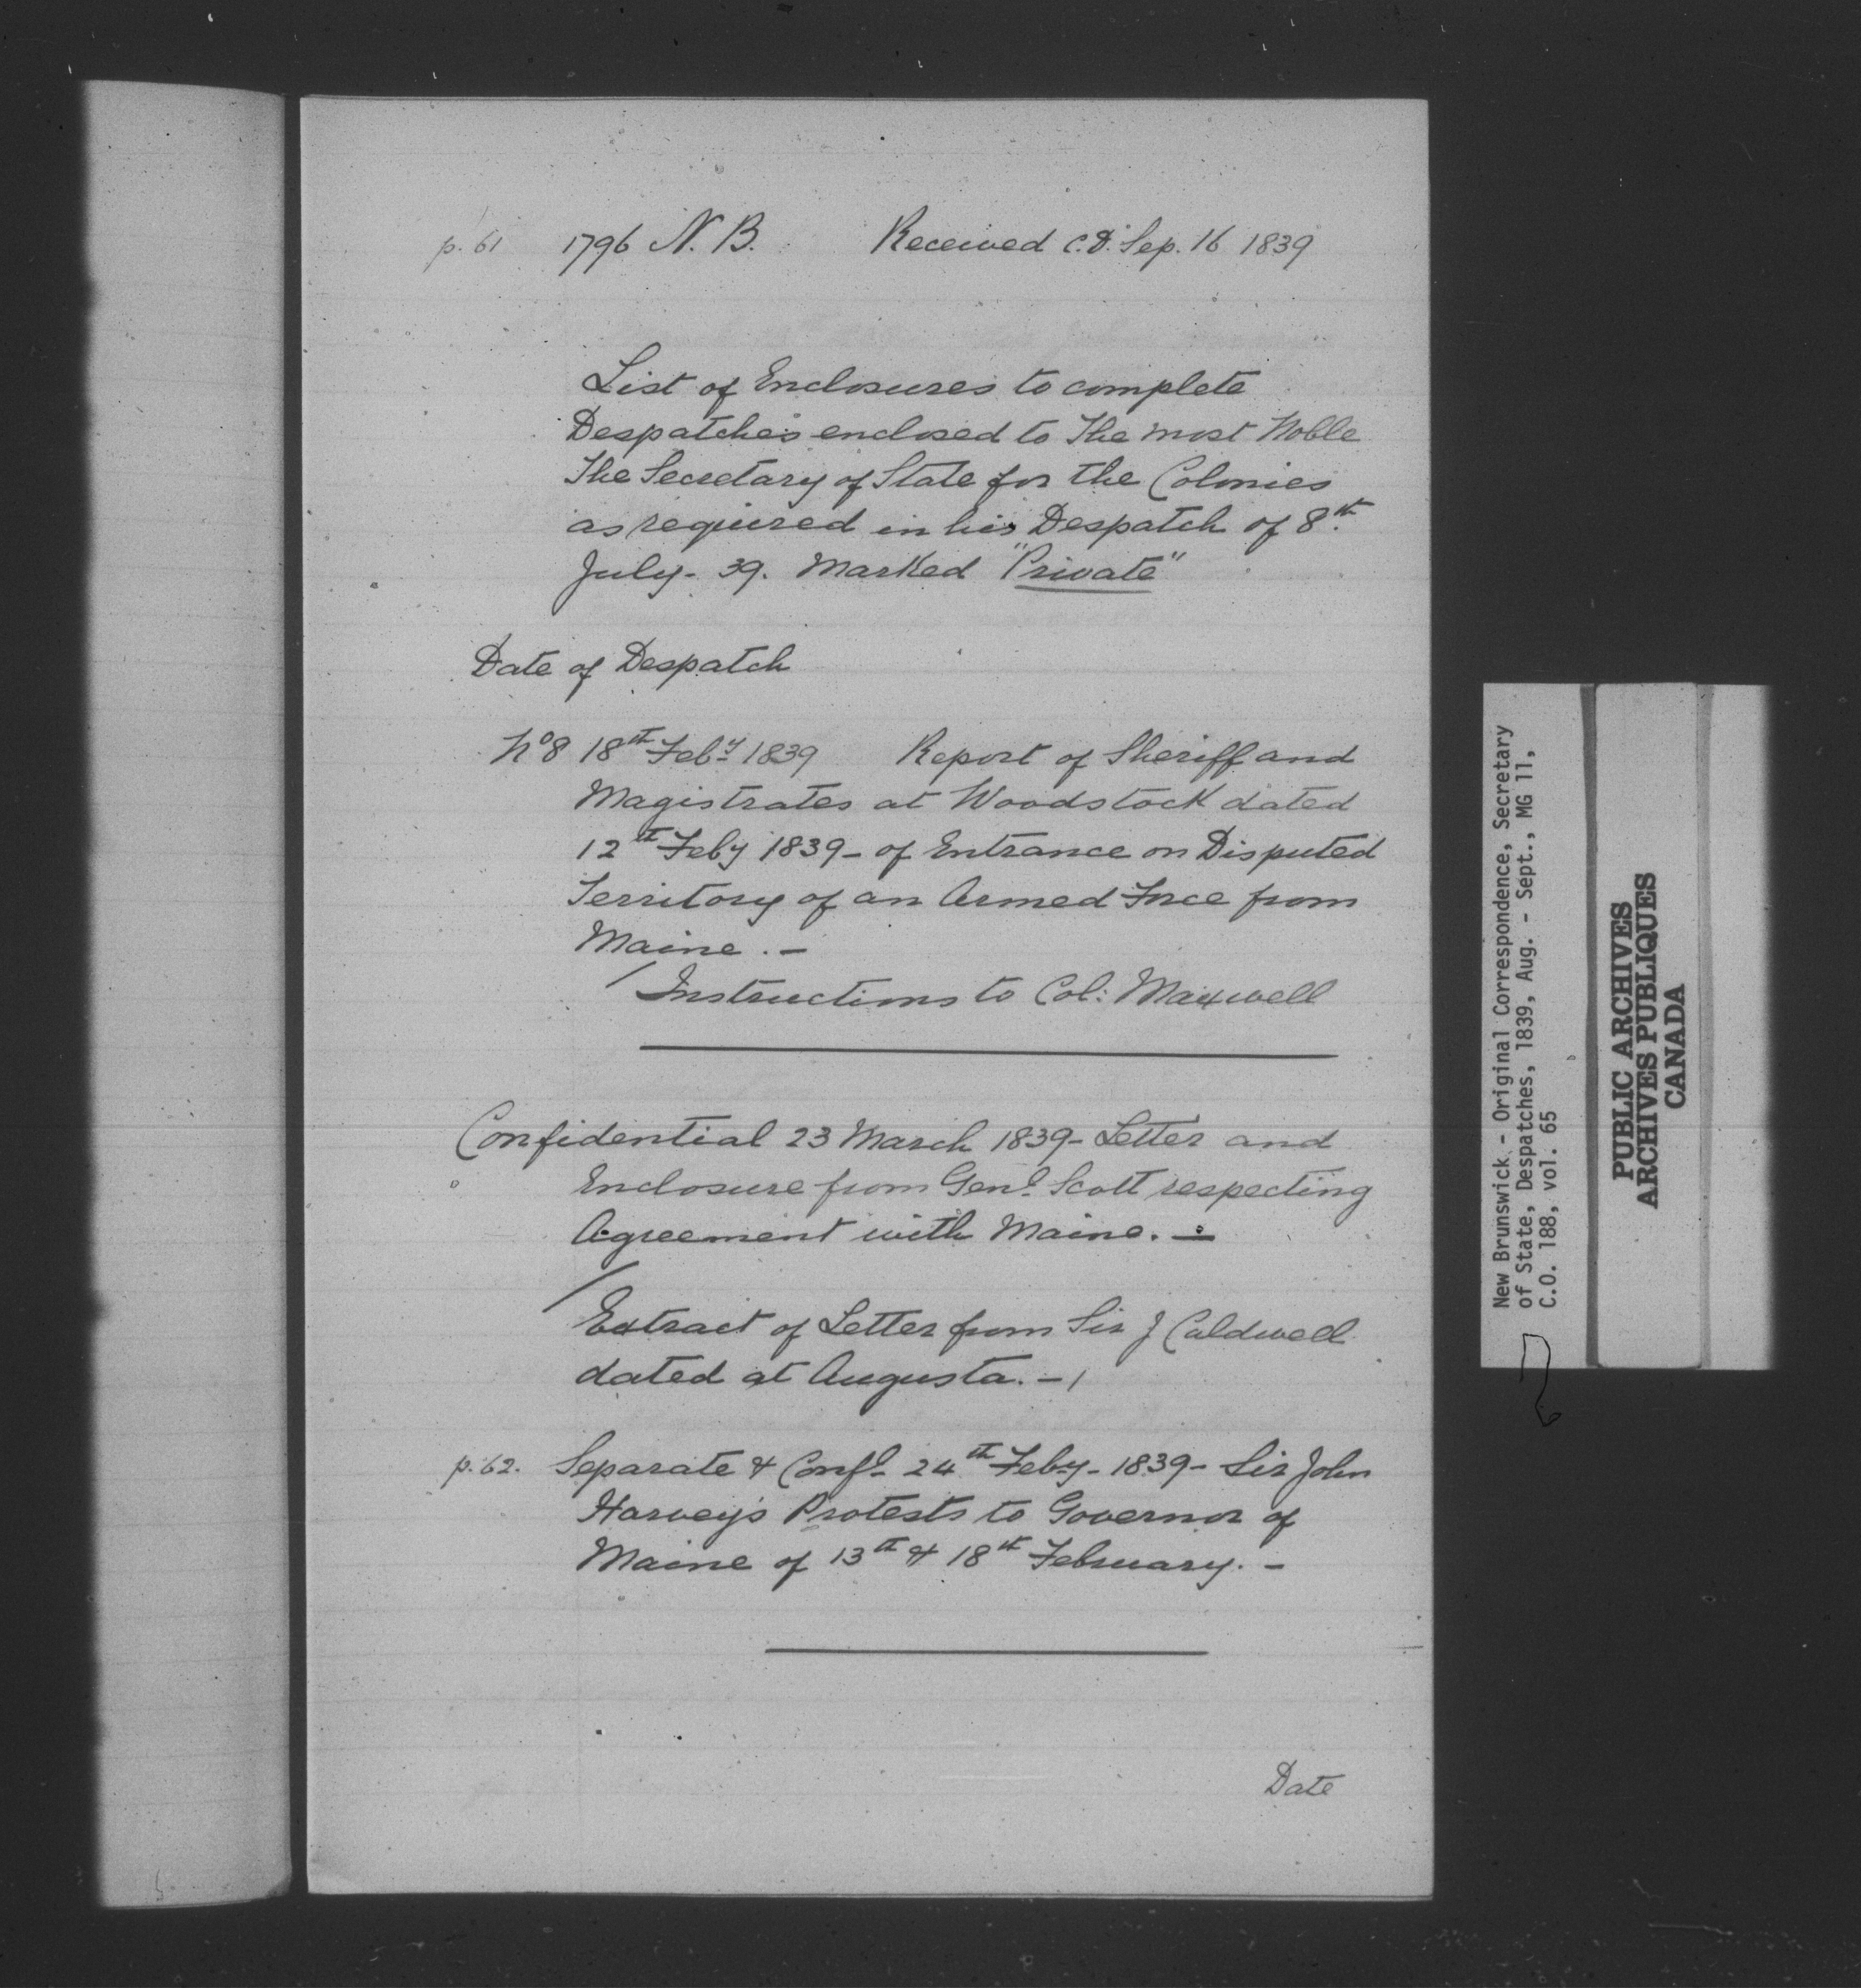 p. 61 1796 N. B. Received C.D. Sep. 16 1839
List of Enclosures to complete
Despatches enclosed to The most Noble
The Secretary of State for the Colonies
as required in his Despatch of 8th
July - 39. Marked "Private"
Date of Despatch
No 8 18th Feby 1839 Report of Sheriff and
Magistrates at Woodstock dated
12th Feby 1839 - of Entrance on Disputed
Territory of an Armed Force from
Maine. -
/ Instructions to Col: Maxwell
Confidential 23 March 1839 - Letter and
Enclosure from Genl. Scott respecting
Agreement with Maine. -
/
Extract of Letter from Sir J Caldwell
dated at Augusta. - /
p. 62. Separate & Confl - 24th Feby - 1839 - Sir John
Harvey's Protests to Governor of
Maine of 13th & 18th February. -
Date
New Brunswick - Original Correspondence, Secretary
of State, Despatches, 1839, Aug. - Sept., MG 11,
C.O. 188, vol. 65
PUBLIC ARCHIVES
ARCHIVES PUBLIQUES
CANADA